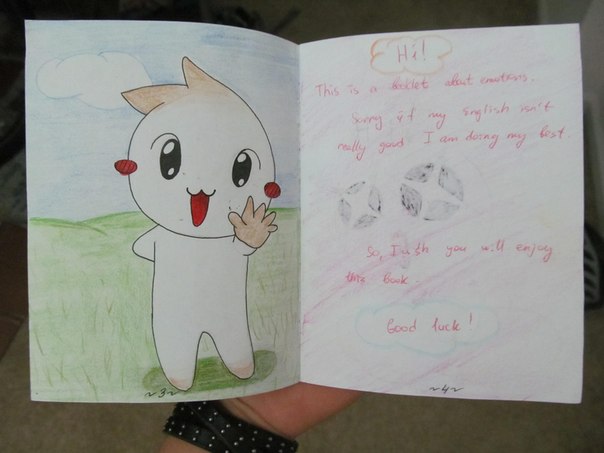 Hi!
This is a booklet about emotions.
Sorry if my English isn't
really good I am doing my best.
So, I wish you will enjoy
this book.
Good luck!
~3~
~4~